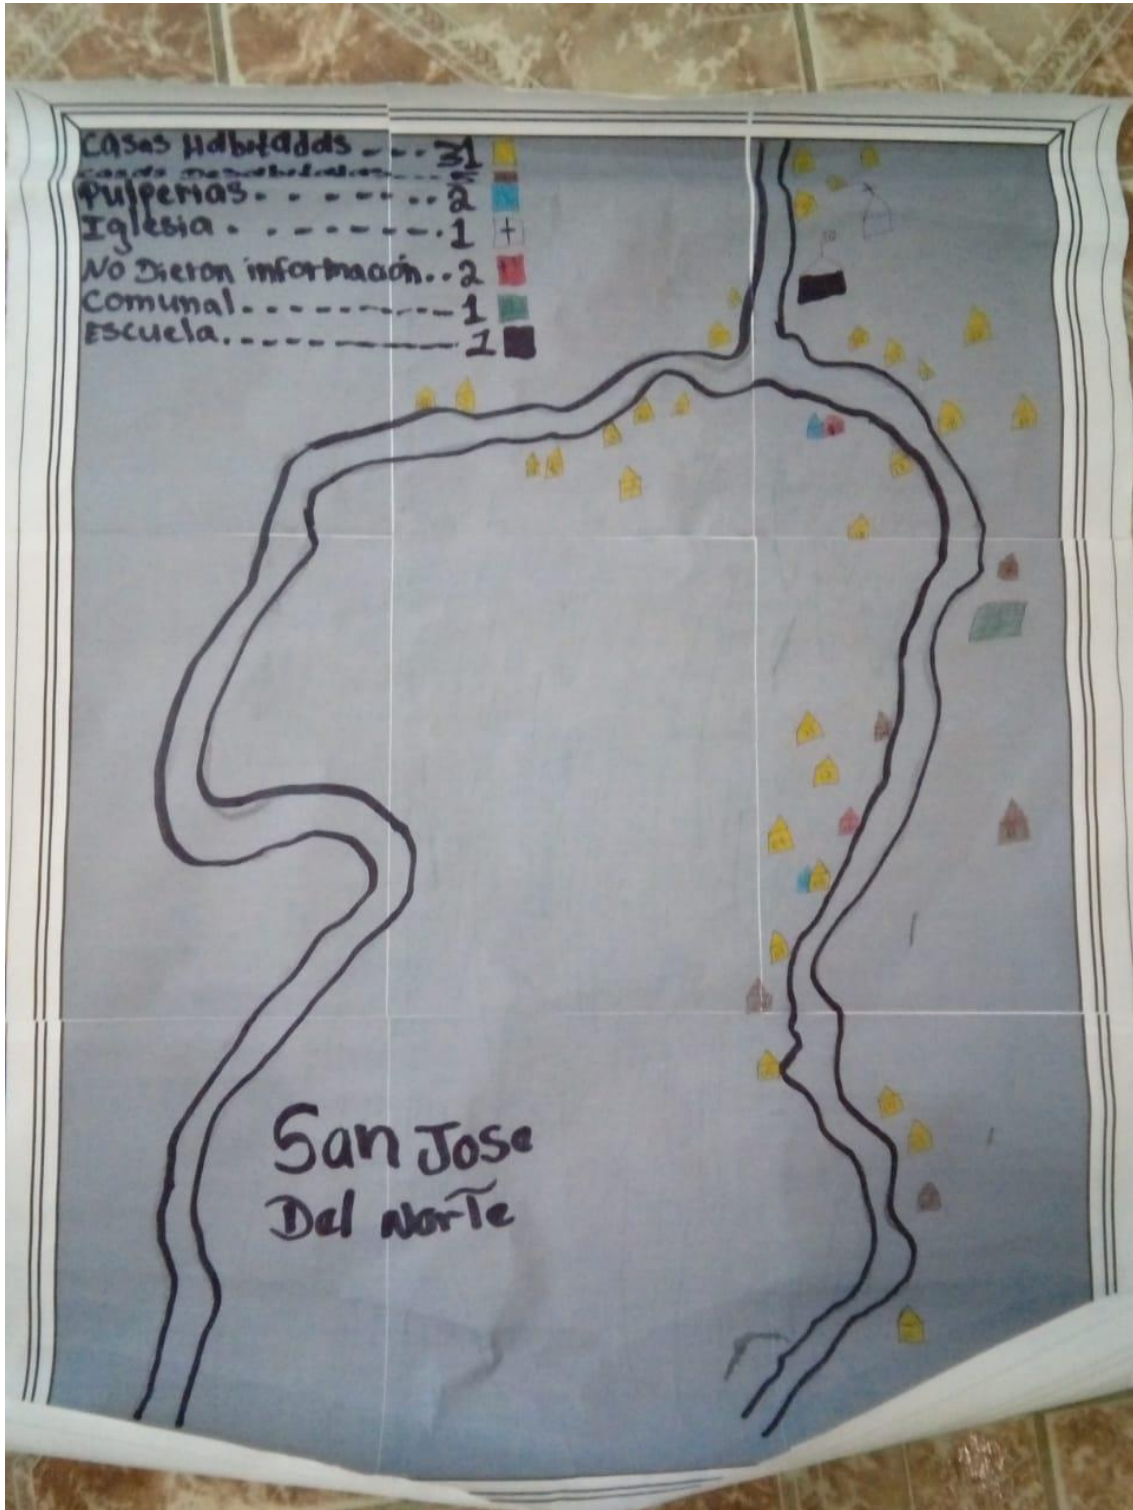 Casas Habitadas - - - 31
Casas Desabitadas - - - - - - 5
Pulperias - - - - - - - - 2
Iglesia - - - - - - - - 1
No Dieron información.. 2
Comunal - - - - - - - - - - - 1
Escuela. - - - - - - - - - - - 1
San Jose
Del Norte